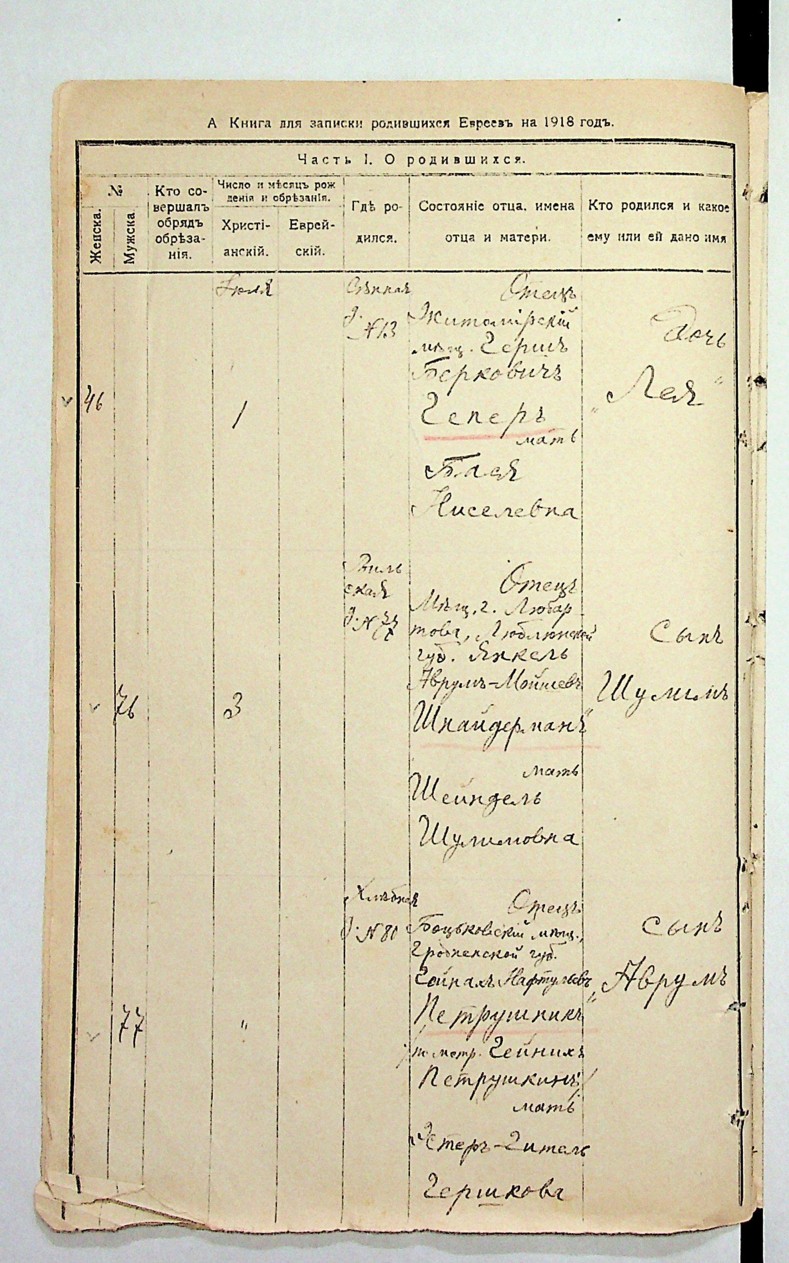 А Книга для записки родившихся Евреевъ на 1918 годъ.
Часть I. О родившихся.
№
Женска.
Мужска
Кто со-
вершалъ
обрядъ
обрѣза-
нія.
Число и мѣсяцъ рож
денія и обрѣзанія.
Христі-
анскій.
Еврей-
скій.
Гдѣ ро-
дился.
Состояніе отца, имена
отца и матери.
Кто родился и какое
ему или ей дано имя
46
Іюля
1
Сѣнная
д. №13
Отецъ
Житомірскій
мѣщ. Гершъ
Берковичъ
Геперъ
мать
Бася
Ниселевна
Дочь
„Лея“
76
3
ская
Отецъ
Мѣщ. г. Любар-
това, Люблинской
губ. Янкель
Аврумъ-Мойшевъ
Шнайдерманъ
мать
Шейндель
Шулимовна
сынъ
Шулимъ
77
"
Хлѣбная
д. №80
Отецъ
Боцьковскій мѣщ.,
Гродненской губ.
Нафтулевъ
Петрушникъ
/по метр. Гейнихъ
Петрушкинъ/
мать
Эстеръ-Гитель
Гершкова
сынъ
„Аврумъ